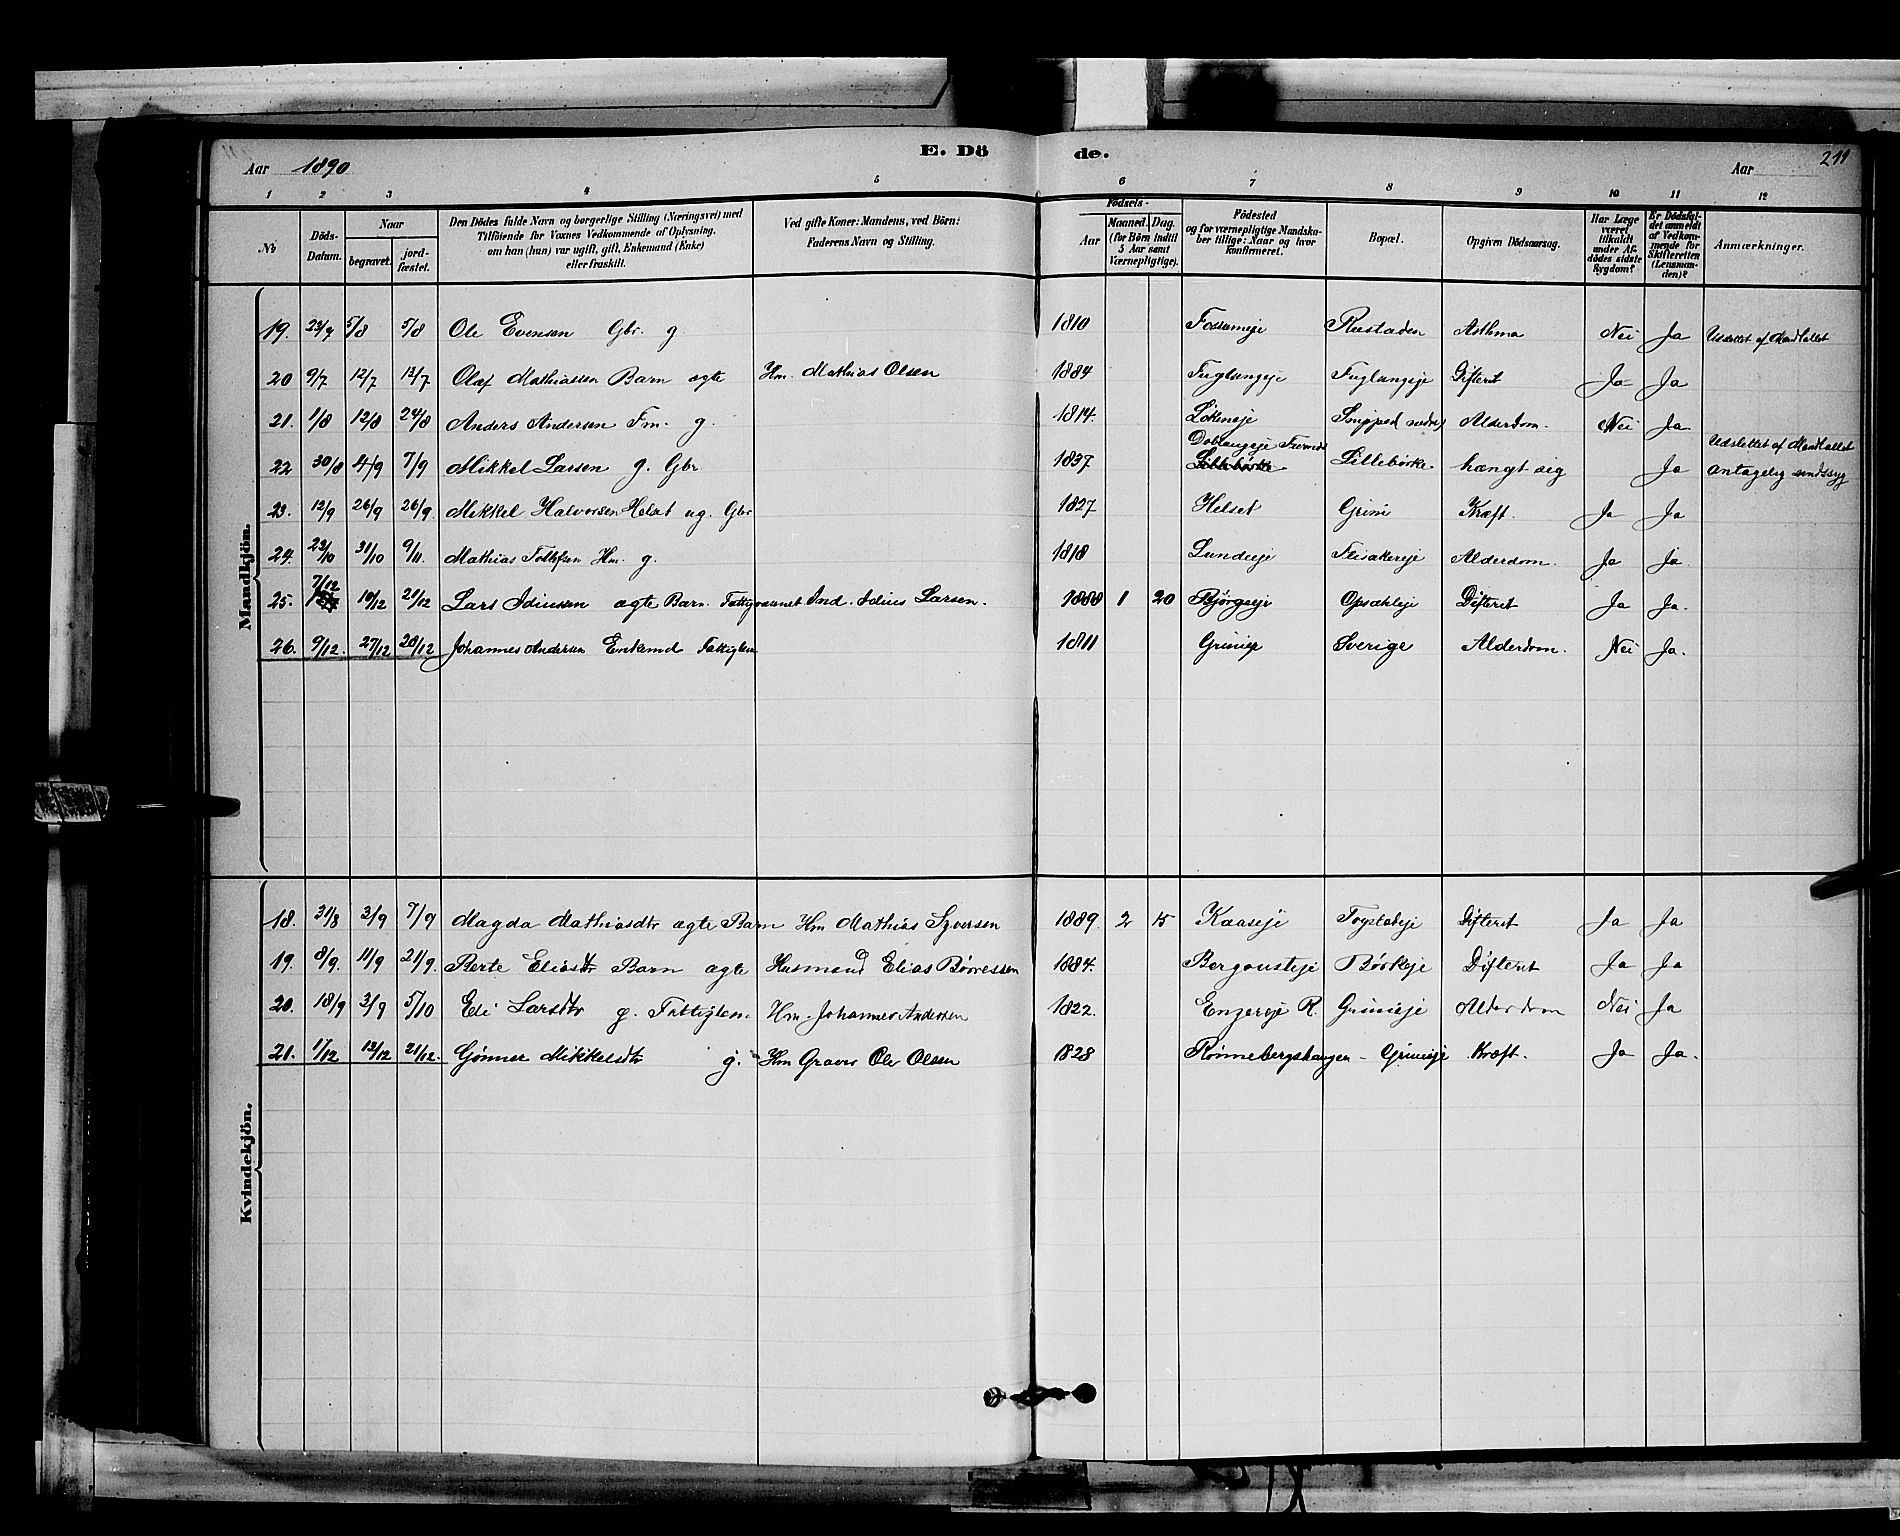 Aar 1890 E. Dö de. Aar 211
1 2 3 4 5 6 7 8 9 10 11 12
No Döds-Datum. Naar begravet. jord-fæstet. Den Dödes fulde Navn og borgerlige Stilling (Næringsvei) med Tilföiende for Voxnes Vedkommende af Oplysning, om han (hun) var ugift, gift, Enkemand (Enke) eller fraskilt. Ved gifte Koner: Mandens, ved Börn: Faderens Navn og Stilling. Födsels- Aar Maaned. Dag. (for Börn indtil 5 Aar samt Værnepligtige). Födested og for værnepligtige Mandskaber tillige: Naar og hvor konfirmeret. Bopæl. Opgiven Dödsaarsag. Har Læge været tilkaldt under Afdödes sidste Sygdom? Er Dödsfaldet anmeldt af Vedkommende for Skifteretten (Lensmanden)? Anmærkninger.
Mandkjön.
19. 23/7 5/8 5/8 Ole Evensen Gbr. g 1810 Fossumeje Rustaden Asthma Nei Ja Udslettet af Mandtallet
20 9/7 12/7 13/7 Olaf Mathiassen Barn ægte Hm. Mathias Olsen 1884 Fuglungeje Fuglungeje Difterit Ja Ja
21. 1/8 12/8 24/8 Anders Andersen Fm. g. 1814. Lökeneje nedre Alderdom. Nei Ja
22 30/8 4/9 7/9 Mikkel Larsen g. Gbr. 1837 Lillebörke Lillebörke hængt sig Ja Udslettet af Mandtallet antagelig sindssyg
23. 12/9 26/9 26/9 Mikkel Halvorsen ug. Gbr 1827 Helset Grini Kræft. Ja Ja
24. 23/10 31/10 9/11. Mathias Tollefsen Hm. g. 1818 Lundeje Flisakereje Alderdom. Ja Ja
25. 7/12 10/12 21/12 Lars Idiussen ægte Barn. Ind. Idius Larsen. 1888 1 20 Bjørgeje Opsahleje Difterit Ja Ja.
26. 9/12. 27/12 28/12 Johannes Andersen Enkemd Fattiglem 1811 Grinieje Sverige Alderdom. Nei Ja.
Kvindekjön.
18. 31/8 3/9 7/9 Magda Mathiasdtr ægte Barn Hm Mathias Syversen 1889. 2 15 Kaaseje Togstadeje Difterit Ja Ja
19. 8/9. 11/9 21/9. Berte Eliasdtr Barn ægte Husmand Elias Börresen 1884. Bergousteje Börkeje Difterit Ja Ja
20. 18/9 3/9 5/10 Eli Larsdtr g. Fattiglem. Hm. Johannes Andersen 1822. Engereje R. Grinieje Alderdom Nei Ja
21. 1/12 13/12 21/12. Gönner Mikkelsdtr g. Hm Graver Ole Olsen 1828 Rønnebergshaugen - Grinieje Kræft. Ja Ja.